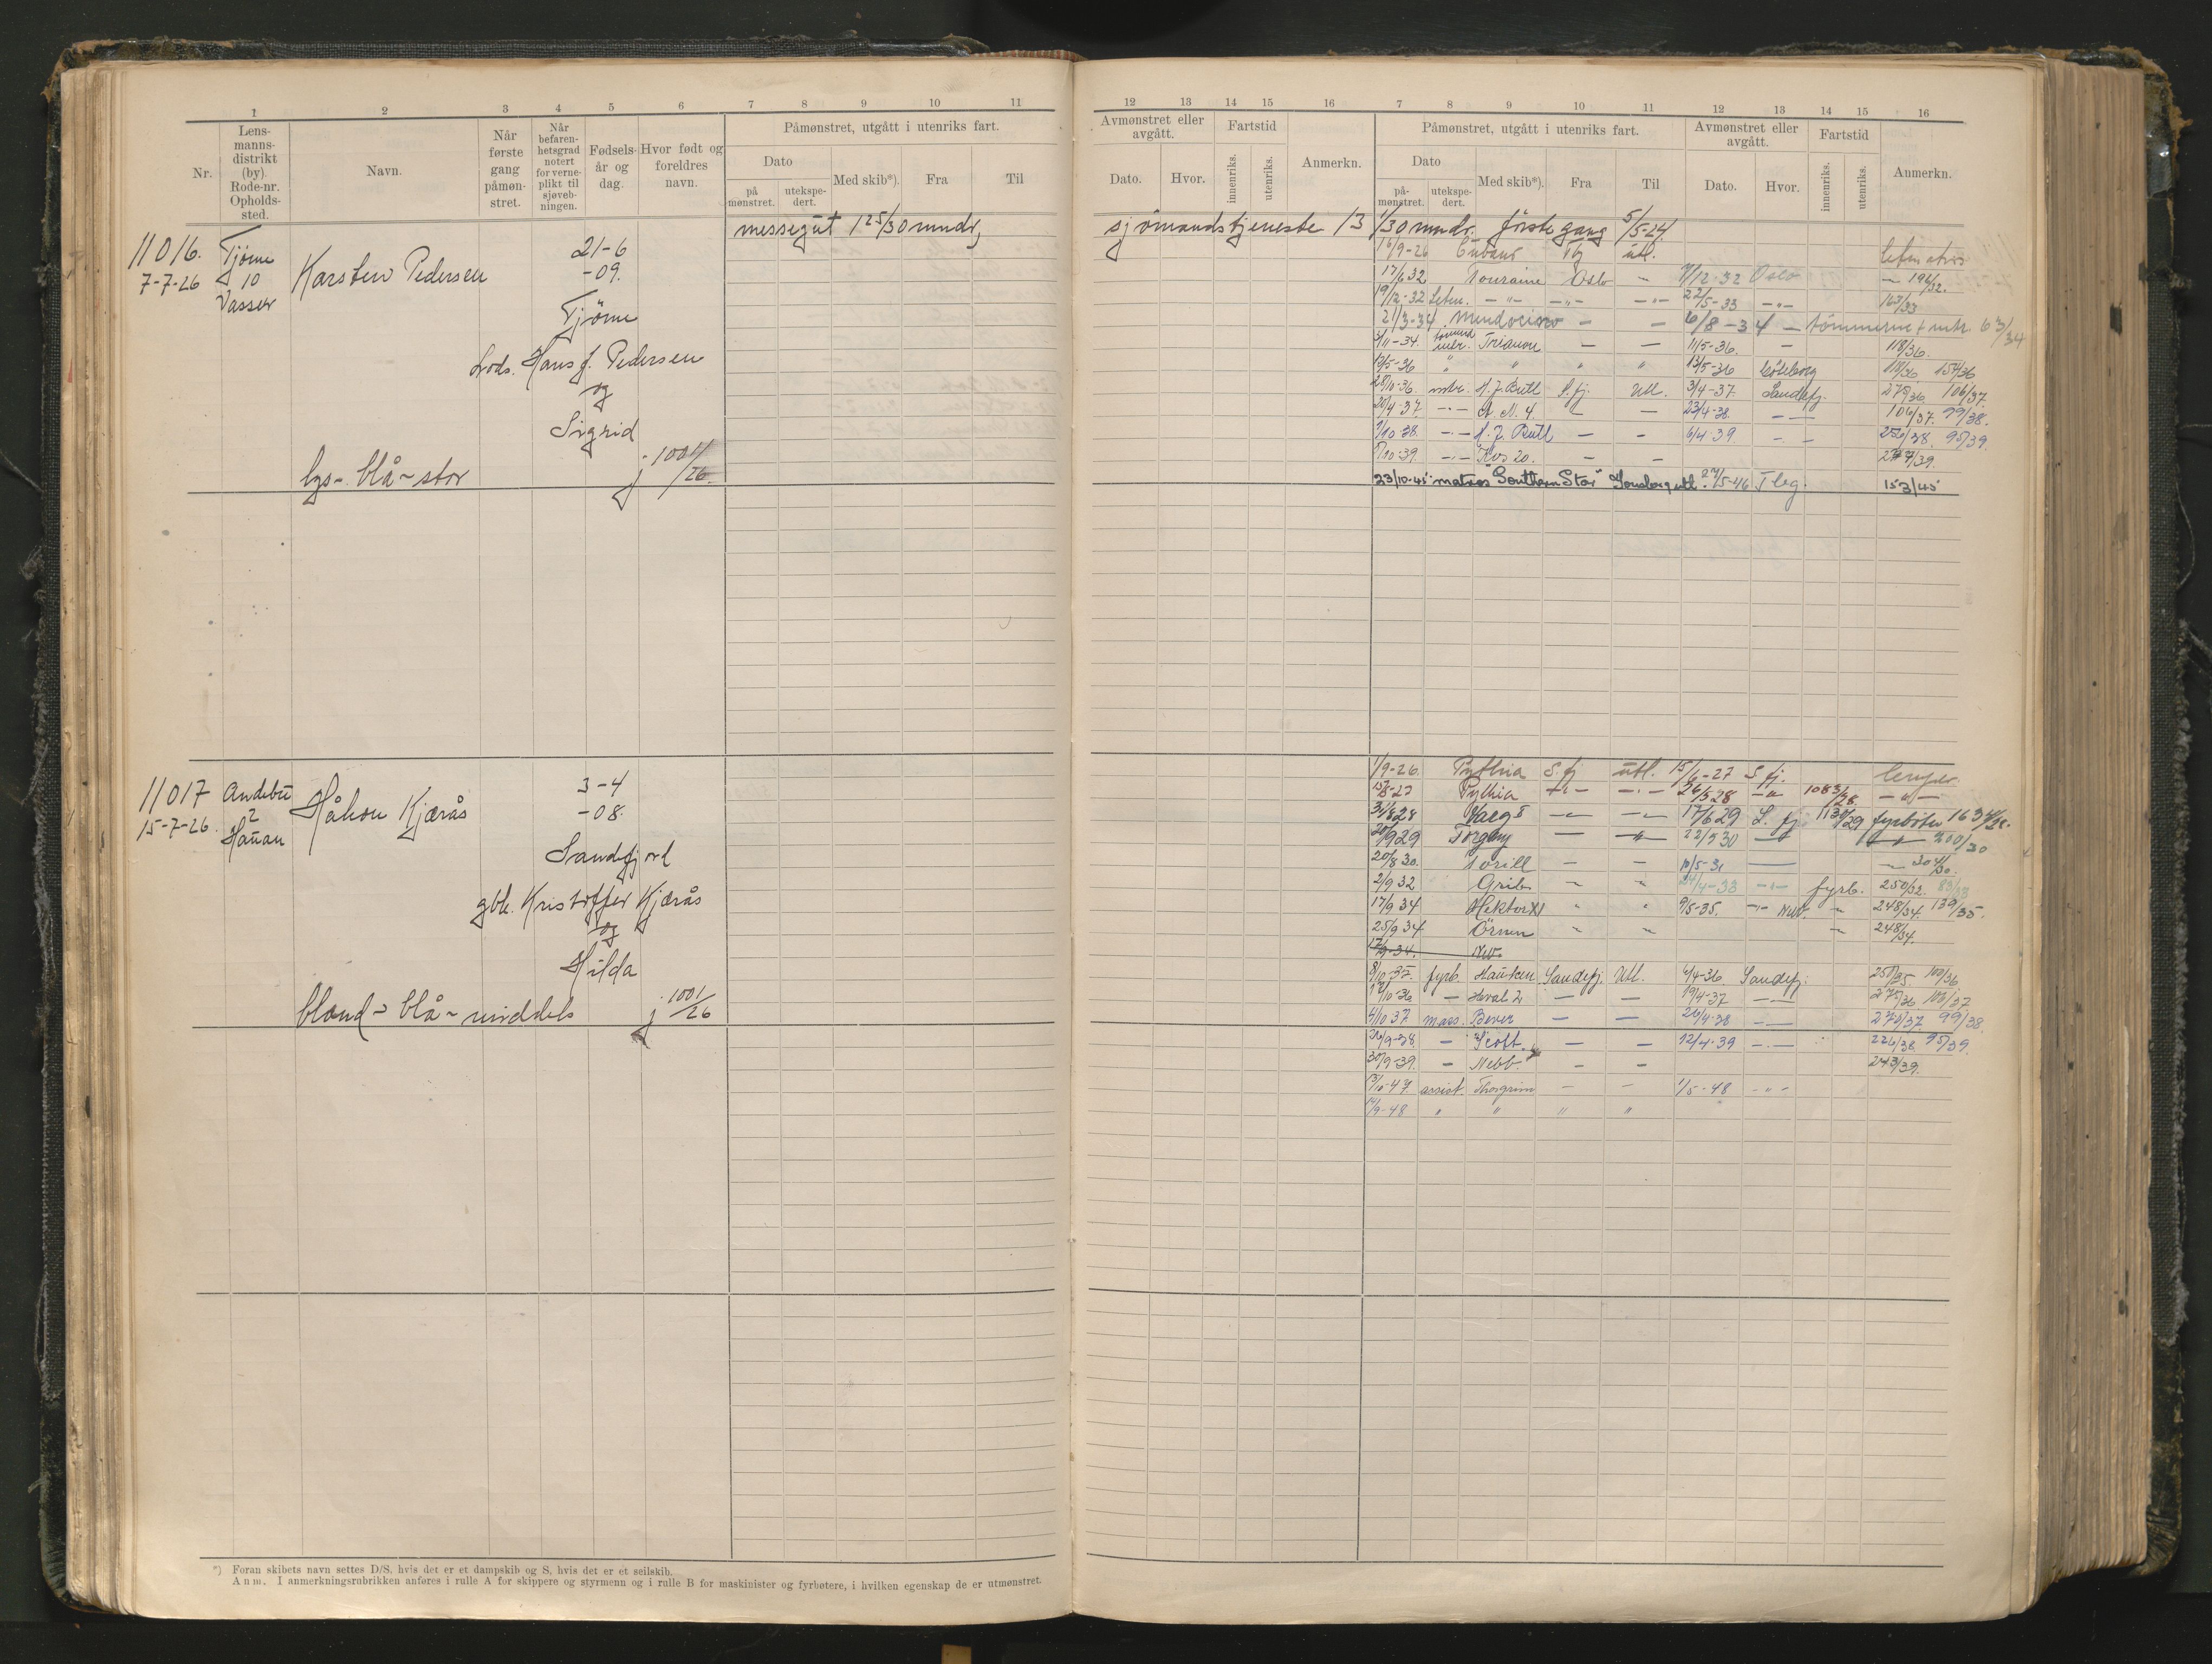 1 2 3 4 5 6 7 8 9 10 11
Nr.
Lens-
manns-
distrikt
(by).
Rode-nr.
Opholds-
sted.
Navn.
Når
første
gang
påmøn-
stret.
Når
befaren-
hetsgrad
notert
for verne-
plikt til
sjøveb-
ningen.
Fødsels-
år og
dag.
Hvor født og
foreldres
navn.
Påmønstret, utgått i utenriks fart.
Dato
på
mønstret.
utekspe-
dert.
Med skib*).
Fra
Til
messegut 1 25/30 mndr,
11016. Tjøme
7-7-26 10
Vasser
Karsten Pedersen
21-6
-09.
Tjöme
Lods. Hans J. Pedersen
og
Sigrid
lys - blå - stor j 1001/26.
11017 Andebu
15-7-26. 2
Håkon Kjærås
3-4
-08.
Sandefjord
gbr. Kristoffer Kjærås
og
Hilda
blond - blå - middels j 1001/26
*) Foran skibets navn settes D/S, hvis det er et dampskib og S, hvis det er et seilskib.
Anm. I anmerkningsrubrikken anføres i rulle A for skippere og styrmenn og i rulle B for maskinister og fyrbøtere, i hvilken egenskap de er utmønstret.
12 13 14 15 16 7 8 9 10 11 12 13 14 15 16
Avmønstret eller
avgått.
Dato.
Hvor.
Fartstid
innenriks.
utenriks.
Anmerkn.
Påmønstret, utgått i utenriks fart.
Dato
på-
mønstret.
utekspe-
dert.
Med skib*).
Fra
Til
Avmønstret eller
avgått.
Dato.
Hvor.
Fartstid
innenriks.
utenriks.
Anmerkn.
sjömandstjeneste 13 1/30 mndr. förste gang 5/5-24.
16/9-26 Cubano Tbg utl.
17/6 32 Touraine Oslo - 7/12-32 Oslo - 196/32.
19/12-32 -"- -"- -"- 22/5-33 -"- 163/33
21/3-34 Mendocino - - 6/8-34 - tömmerm + mtr. 63/34
3/11-34. Treanon - - 11/5-36. - 118/36.
13/5-36 " " " " 13/5-36 Göteborg 118/36 154/36
28/10-36. mtr. H. J. Bull S.fj. Utl. 3/4-37. Sandefj. 279/36 106/37.
20/4-37. -"- A. N. 4. - - 23/4-38. - - 106/37. 99/38.
1/10-38. -"- H. J. Bull - - 6/4-39. - - 256/38. 95/39.
5/10-39. -"- Kos 20. - - 277/39.
23/10-45 matros "Southern Star" Tønsberg utl. 27/5-46 Tbg. 153/45
1/9-26. Pythia S.fj utl. 15/6-27 S.fj. lemper
15/8-27 Pythia -"- -"- 26/5 28 -"- 1083/28. -"-
31/8 28 -"- -"- 17/6 29 S.fj 1130/29 fyrböter 1634/28.
20/9 29 Torgny - -"- 22/5 30 -"- 200/30
20/8 30. Torill - - 10/5-31 - - 304/30.
2/9 32 Grib. - - 24/4-33 -"- fyrb. 250/32. 83/33
17/9 34 Hektor XI " " 9/5-35. -"- NW - 248/34. 139/35.
25/9 34 Örnen - - - 248/34.
17/9-34. NW.
8/10-35. fyrb. Hauken Sandefj. Utl. 4/4-36 Sandefj. 250/35 100/36.
12/10-36 - Hval 2 - - 19/4-37 - - 275/36 106/37
4/10 37 mass. Bever - - 20/4-38 - - 270/37 99/38.
26/9-38. - Scott. - - 12/4-39 -"- 226/38 95/39.
30/9-39. - Nebb. - - 243/39.
13/10-47 assist. Thorgrim - - 1/5-48 -"-
14/9-48 " " " "